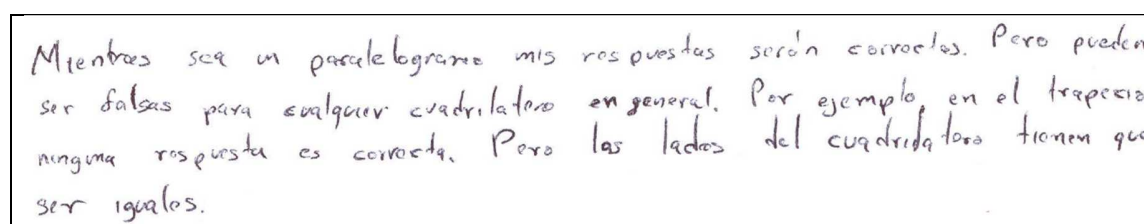 Mientras sea un paralelogramo mis respuestas serán correctas. Pero pueden
ser falsas para cualquier cuadrilatero en general. Por ejemplo, en el trapecio
ninguna respuesta es correcta. Pero los lados del cuadridatoro tienen que
ser iguales.